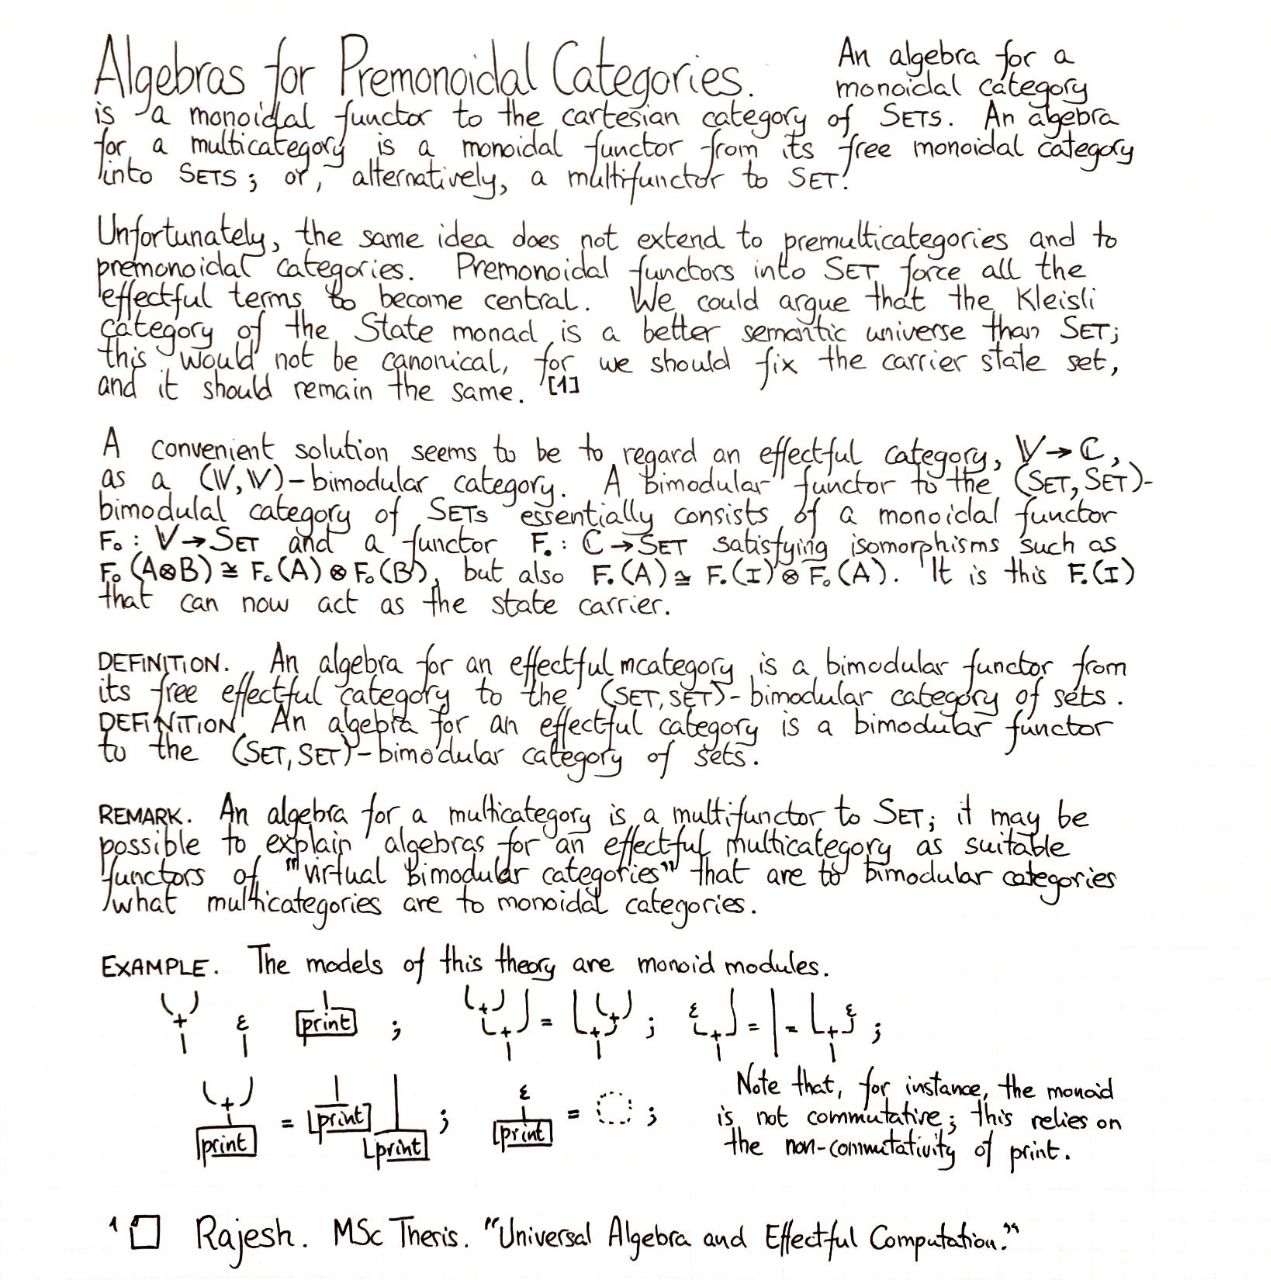 Algebras for Premonoidal Categories. An algebra for a
monoidal category
is a monoidal functor to the cartesian category of SETS. An algebra
for a multicategory is a monoidal functor from its free monoidal category
into SETS; or, alternatively, a multifunctor to SET.
Unfortunately, the same idea does not extend to premulticategories and to
premonoidal categories. Premonoidal functors into SET force all the
effectful terms to become central. We could argue that the Kleisli
category of the State monad is a better semantic universe than SET;
this would not be canonical, for we should fix the carrier state set,
and it should remain the same. [1]
A convenient solution seems to be to regard an effectful category, 𝕍→ℂ,
as a (𝕍,𝕍)-bimodular category. A bimodular functor to the (SET, SET)-
bimodulal category of SETS essentially consists of a monoidal functor
F₀ : 𝕍→SET and a functor F. : ℂ→SET satisfying isomorphisms such as
F₀(A⊗B) ≅ F₀(A)⊗F₀(B), but also F.(A) ≅ F.(I)⊗F₀(A). It is this F.(I)
that can now act as the state carrier.
DEFINITION. An algebra for an effectful mcategory is a bimodular functor from
its free effectful category to the (SET, SET)-bimodular category of sets.
DEFINITION An algebra for an effectful category is a bimodular functor
to the (SET, SET)-bimodular category of sets.
REMARK. An algebra for a multicategory is a multifunctor to SET; it may be
possible to explain algebras for an effectful multicategory as suitable
functors of "virtual bimodular categories" that are to bimodular categories
what multicategories are to monoidal categories.
EXAMPLE. The models of this theory are monoid modules.
+ ε print ; + + = + + ; ε + = = + ε ;
+ print = print print ; ε print = ;
Note that, for instance, the monoid
is not commutative; this relies on
the non-commutativity of print.
1 Rajesh. MSc Thesis. "Universal Algebra and Effectful Computation."